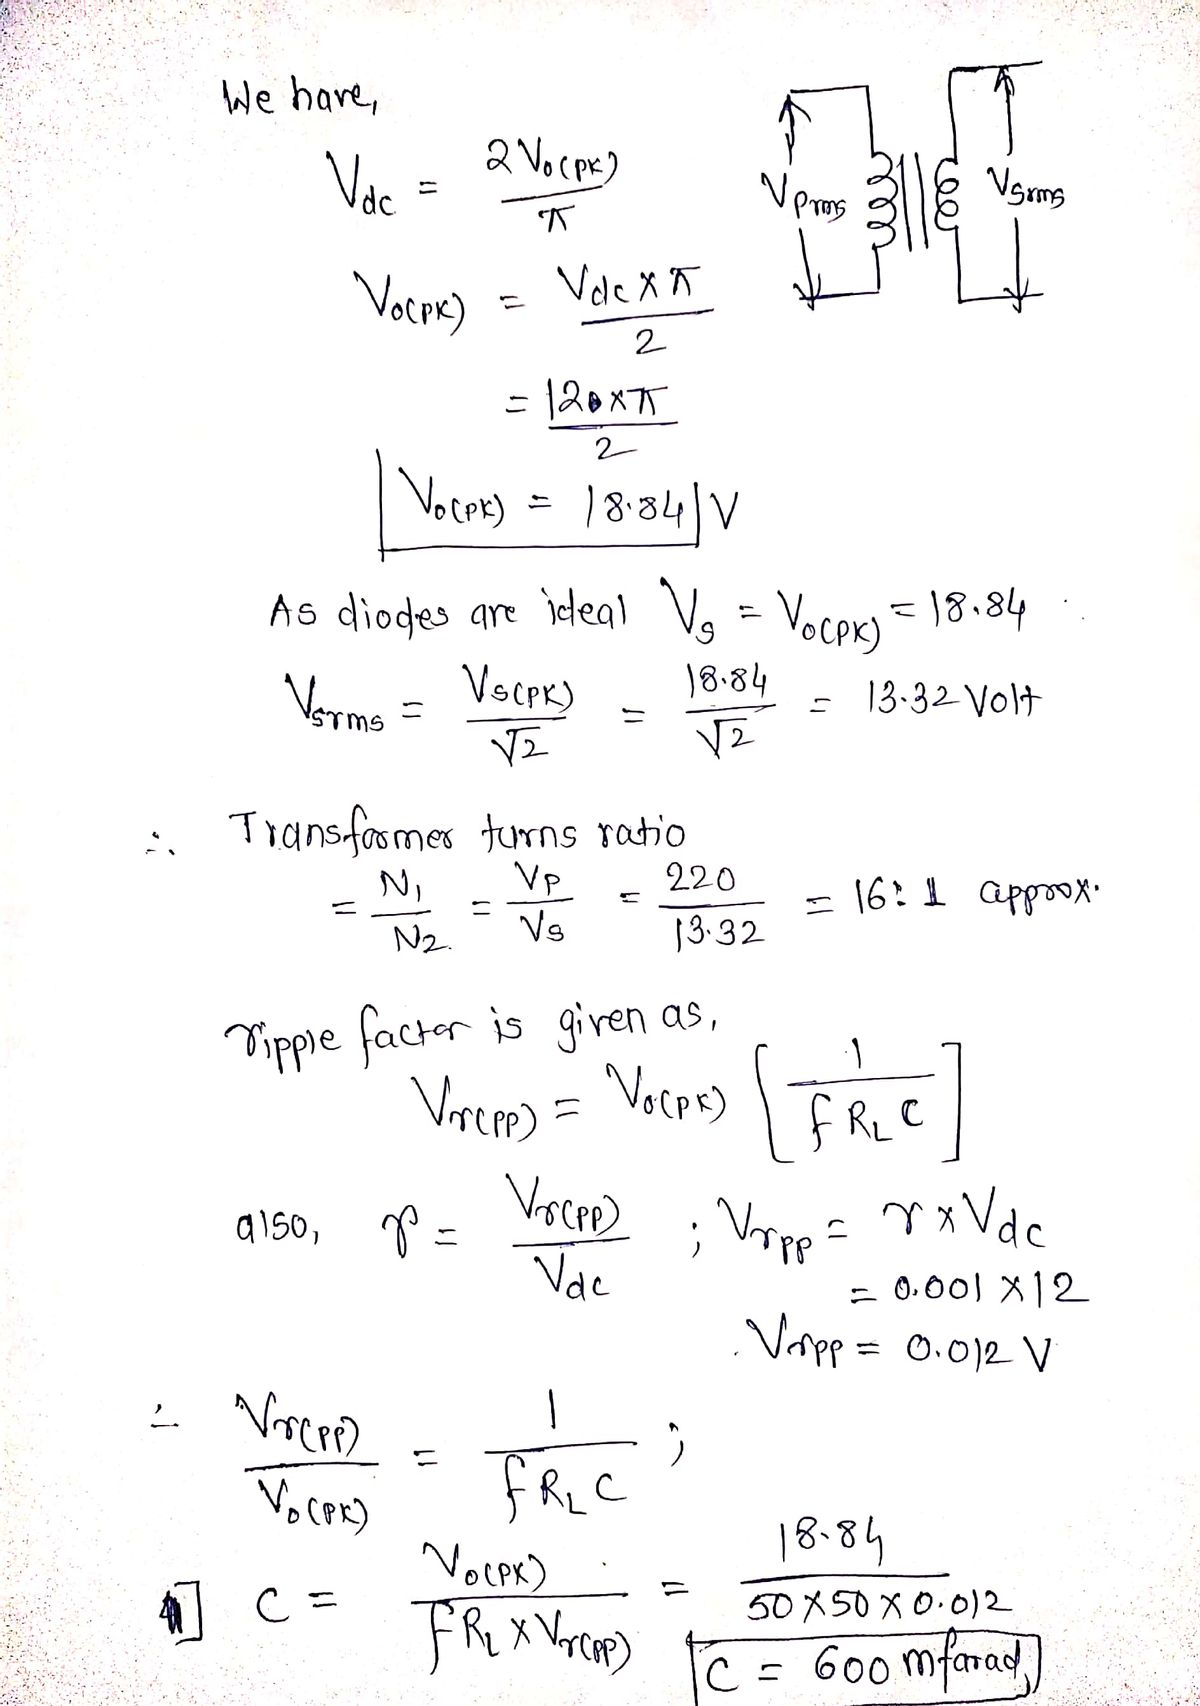 We have,
Vdc = 2Vo(PK) / π
Vo(PK) = Vdc × π / 2
= 12 × π / 2
Vo(PK) = 18.84 V
VPrms
VSrms
As diodes are ideal Vs = Vo(PK) = 18.84
Vsrms = Vs(PK) / √2 = 18.84 / √2 = 13.32 Volt
∴ Transformer turns ratio
= N1 / N2 = VP / Vs = 220 / 13.32 = 16:1 approx.
ripple factor is given as,
Vr(PP) = Vo(PK) [ 1 / f RL C ]
also, r = Vr(PP) / Vdc ; Vrpp = r × Vdc
= 0.001 × 12
Vrpp = 0.012 V
∴ Vr(PP) / Vo(PK) = 1 / f RL C ;
C = Vo(PK) / f RL × Vr(PP) = 18.84 / 50 × 50 × 0.012
C = 600 mfarad